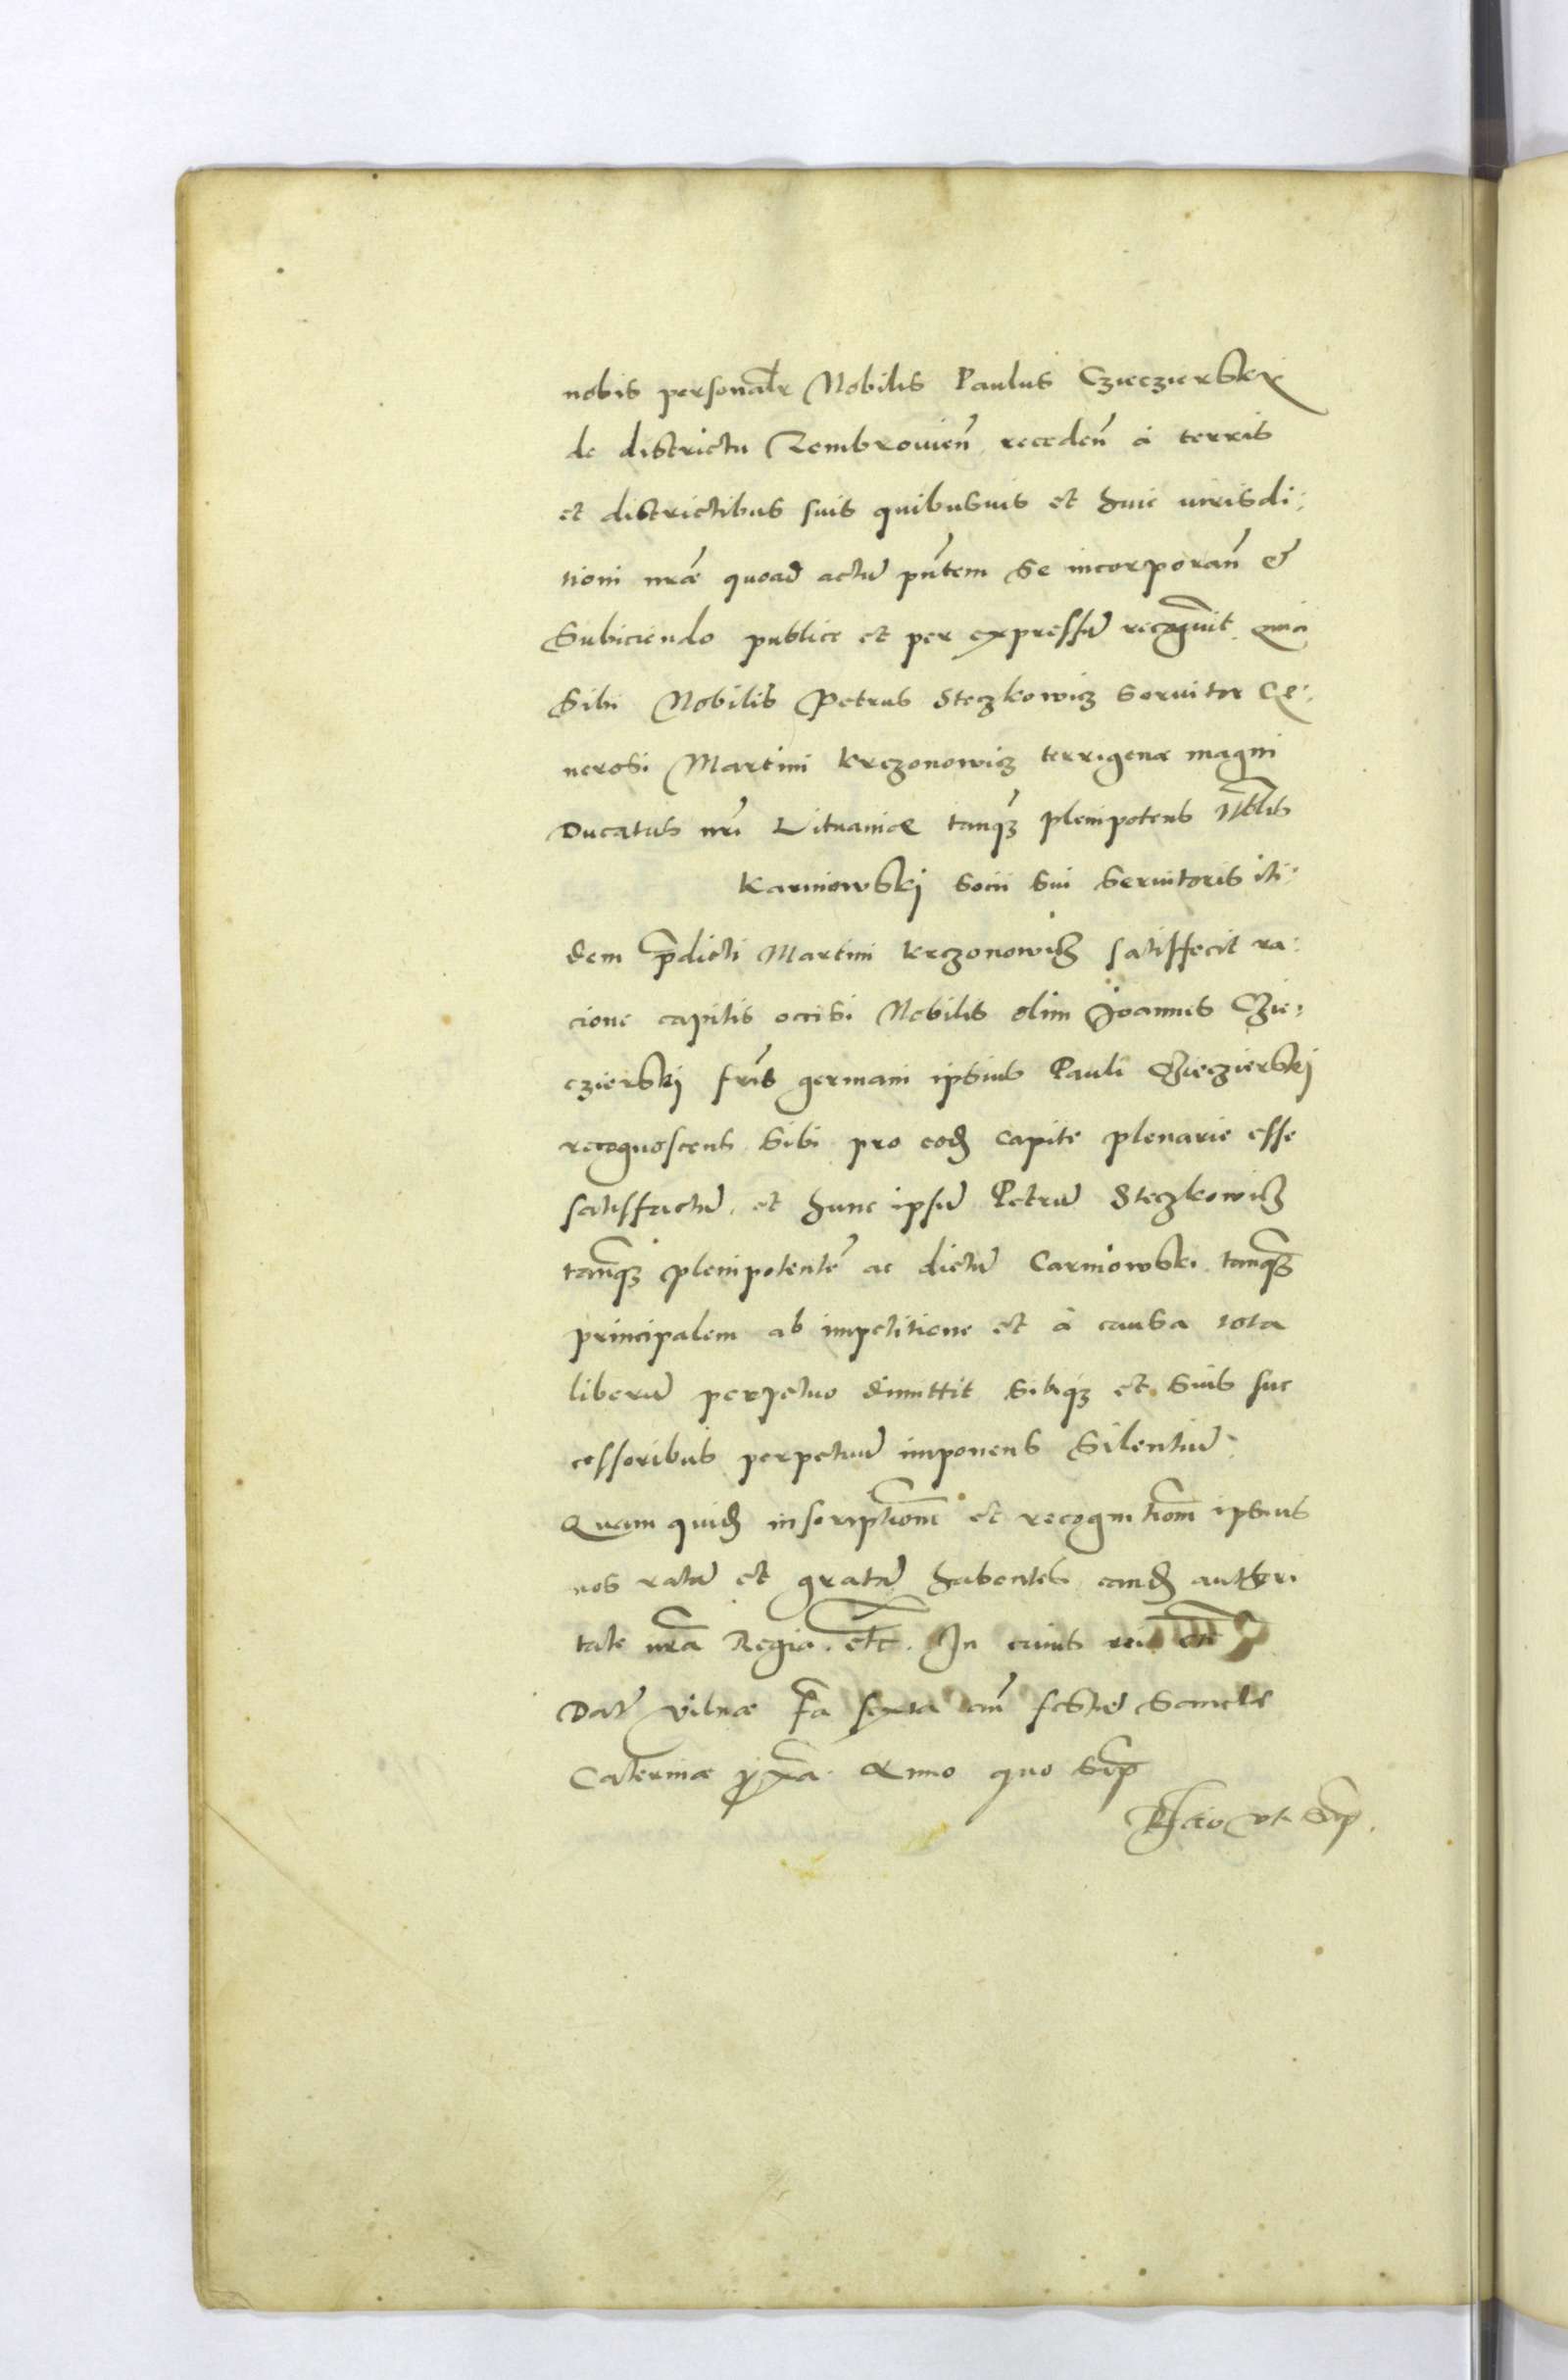 nobis personalr Nobilis Paulus Czieczierskij
de districtu Zembrowien̄ receden̄ à terris
et districtibus suis quibusuis et huic iurisdi:
tioni nrãe quoad actū pñtem se incorporan̄ et
subiciendo publice et per expressū recognuit quia
sibi Nobilis Petrus Steczkowicz seruitor Ge:
nerosi Martini Krczonowicz terrigenae magni
Ducatus nr̄i Lituaniae tanqȝ plenipotens Nblis
Karniowskj socii sui seruitoris iti:
dem p̄dicti Martini Krczonowicz satisfecit ra:
cione capitis occisi Nobilis olim Joannis Czie:
czierskj fr̄is germani ipsius Pauli Czieczierskj
recognoscens sibi pro eodȝ capite plenarie esse
satisfactū, et hunc ipsū Petrū Steczkowicz
tanqȝ plenipotentē ac dictū Carniowski tanqȝ
principalem ab impetitione et à causa tota
liberū perpetuo dimittit sibiqȝ et suis suc
cessoribus perpetuū imponens silentiū.
Quam quidȝ inscriptionē et recognitionē ipsius
nos ratā et gratā habentes eandȝ authori
tate nrã Regia. etc. In cuius rei etc
Dat̄ vilnae fr̄a sexta an̄ festū Sanctae
Caterinae px̄a. Anno quo sup̄
Rl̄acio vt sup̄.